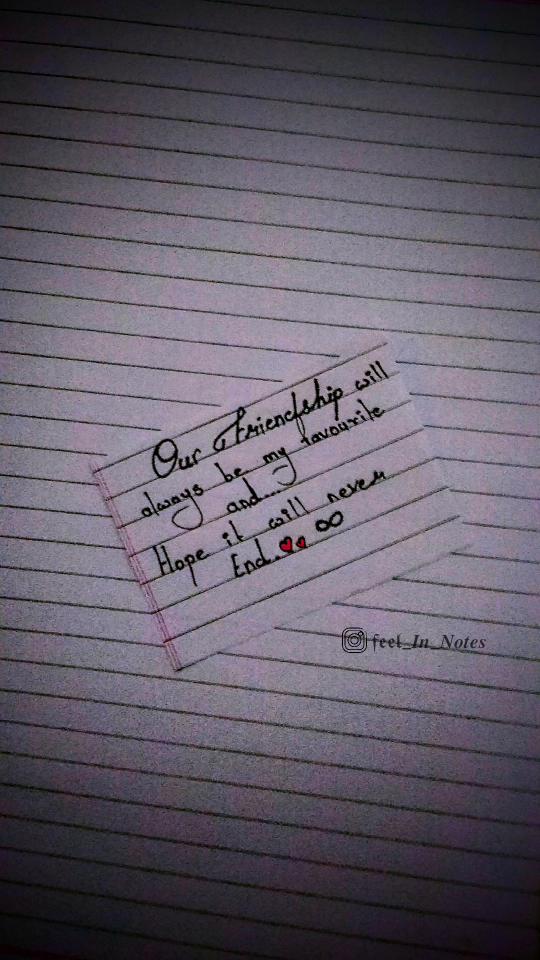 Our Friendship will
always be my favourite
and...
Hope it will never
End..❤❤ ∞
feel_In_Notes